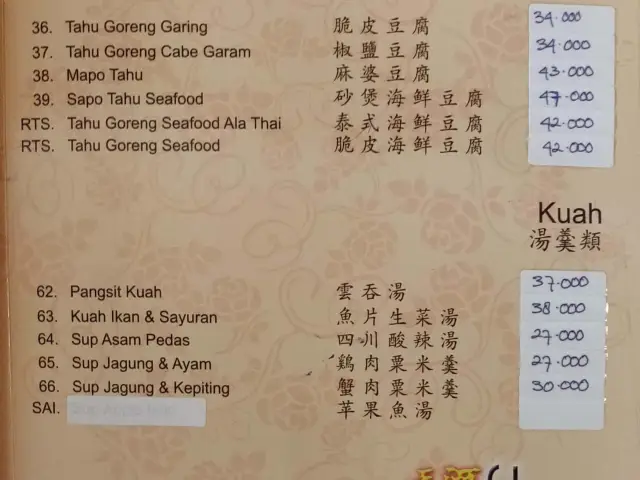 36. Tahu Goreng Garing 脆皮豆腐 34.000
37. Tahu Goreng Cabe Garam 椒鹽豆腐 34.000
38. Mapo Tahu 麻婆豆腐 43.000
39. Sapo Tahu Seafood 砂煲海鮮豆腐 47.000
RTS. Tahu Goreng Seafood Ala Thai 泰式海鮮豆腐 42.000
RTS. Tahu Goreng Seafood 脆皮海鮮豆腐 42.000
Kuah
湯羹類
62. Pangsit Kuah 雲吞湯 37.000
63. Kuah Ikan & Sayuran 魚片生菜湯 38.000
64. Sup Asam Pedas 四川酸辣湯 27.000
65. Sup Jagung & Ayam 鷄肉粟米羹 27.000
66. Sup Jagung & Kepiting 蟹肉粟米羹 30.000
SAI. 苹果魚湯